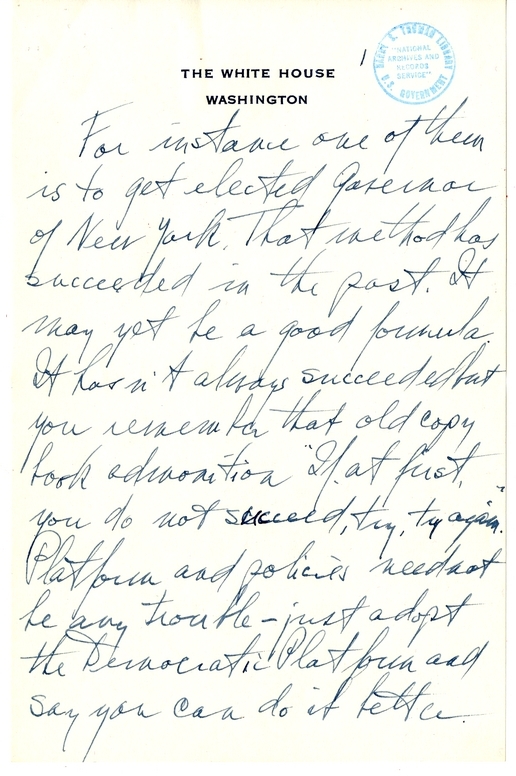 1
HARRY S. TRUMAN LIBRARY
"NATIONAL
ARCHIVES AND
RECORDS
SERVICE"
U.S. GOVERNMENT
THE WHITE HOUSE
WASHINGTON
For instance one of them
is to get elected Governor
of New York. That method has
succeeded in the past. It
may yet be a good formula.
It hasn't always succeeded but
you remember that old copy
book admonition "If at first,
you do not succeed, try, try again."
Platform and policies need not
be any trouble – just adopt
the Democratic Platform and
say you can do it better